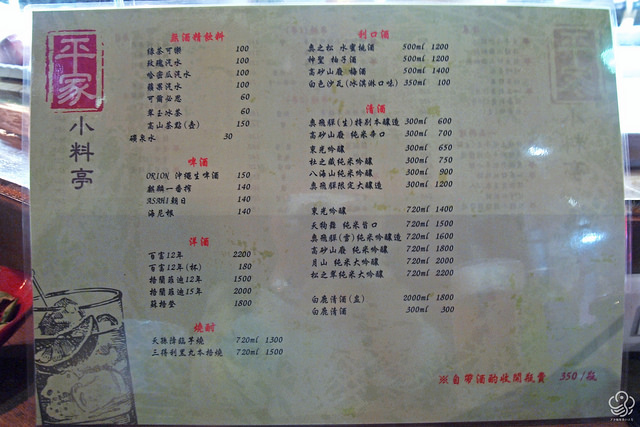 平家
小料亭
無酒精飲料
綠茶可樂 100
玫瑰汽水 100
哈密瓜汽水 100
蘋果汽水 100
可爾必思 60
翠玉冰茶 60
高山茶點(壺) 150
礦泉水 30
啤酒
ORION 沖繩生啤酒 150
麒麟一番搾 140
ASAHI朝日 140
海尼根 140
洋酒
百富12年 2200
百富12年(杯) 180
格蘭菲迪12年 1500
格蘭菲迪15年 2000
蘇格登 1800
燒酎
天孫降臨芋燒 720ml 1300
三得利里丸本格燒 720ml 1500
利口酒
奧之松 水蜜桃酒 500ml 1200
神聖 柚子酒 500ml 1200
高砂山廢 梅酒 500ml 1400
白色沙瓦(冰淇淋口味) 350ml 100
清酒
奧飛驒(生)特別本釀造 300ml 600
高砂山廢 純米辛口 300ml 700
東光吟釀 300ml 650
杜之藏純米吟釀 300ml 750
八海山純米吟釀 300ml 900
奧飛驒限定大釀造 300ml 1200
東光吟釀 720ml 1400
天狗舞 純米旨口 720ml 1500
奧飛驒(雪)純米吟釀造 720ml 1600
高砂山廢 純米吟釀 720ml 1800
月山 純米大吟釀 720ml 2000
松之翠純米大吟釀 720ml 2200
白鹿清酒(盒) 2000ml 1800
白鹿清酒 300ml 300
※自帶酒酌收開瓶費 350/瓶